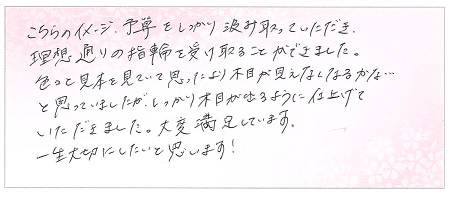 こちらのイメージ、予算をしっかり汲み取っていただき、
理想通りの指輪を受け取ることができました。
色々と見本を見ていて思ったより木目が見えなくなるかな…
と思っていましたが、しっかり木目が出るように仕上げて
いただきました。大変満足しています。
一生大切にしたいと思います!